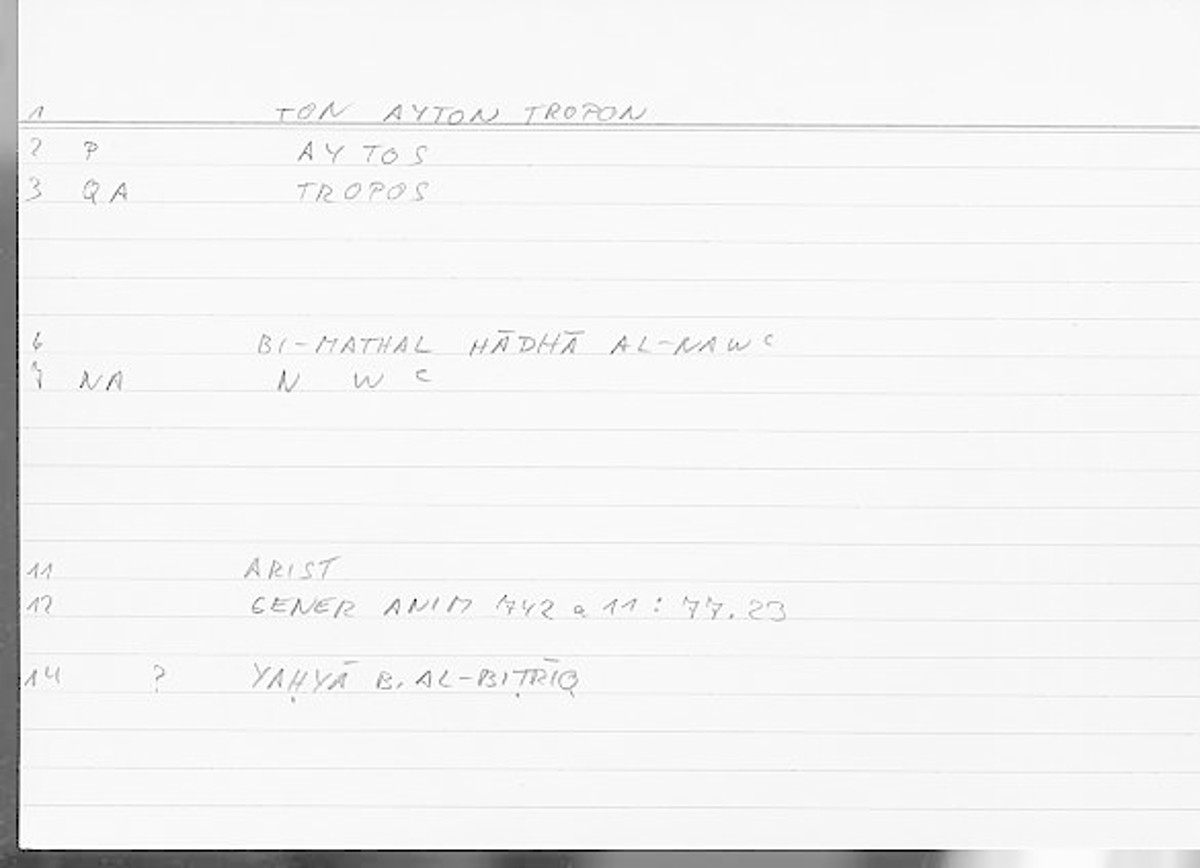 1 TON AYTON TROPON
2 P AYTOS
3 QA TROPOS
6 BI-MATHAL HĀDHĀ AL-NAWC
7 NA N W C
11 ARIST
12 GENER ANIM 742 a 11 : 77.23
14 ? YAḤYĀ B. AL-BIṬRĪQ